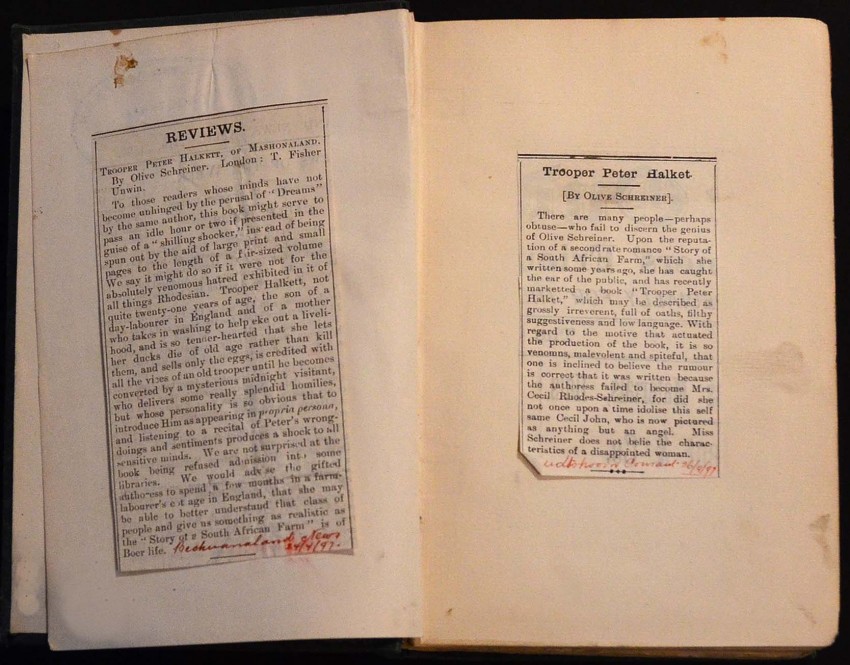 REVIEWS.
TROOPER PETER HALKETT, OF MASHONALAND.
By Olive Schreiner. London: T. Fisher
Unwin.
To those readers whose minds have not
become unhinged by the perusal of "Dreams"
by the same author, this book might serve to
pass an idle hour or two if presented in the
guise of a "shilling shocker," ins ead of being
spun out by the aid of large print and small
pages to the length of a f ir-sized volume
We say it might do so if it were not for the
absolutely venomous hatred exhibited in it of
all things Rhodesian. Trooper Halkett, not
quite twenty-one years of age, the son of a
day-labourer in England and of a mother
who takes in washing to help eke out a liveli-
hood, and is so tender-hearted that she lets
her ducks die of old age rather than kill
them, and sells only the eggs, is credited with
all the vices of an old trooper until he becomes
converted by a mysterious midnight visitant,
who delivers some really splendid homilies,
but whose personality is so obvious that to
introduce Him as appearing in propria persona,
and listening to a recital of Peter's wrong-
doings and sentiments produces a shock to all
sensitive minds. We are not surprised at the
book being refused admission into some
libraries. We would advise the gifted
authoress to spend a few months in a farm-
labourer's cot age in England, that she may
be able to better understand that class of
people and give us something as realistic as
the "Story of a South African Farm" is of
Boer life. Bechuanaland News
24/4/97.
Trooper Peter Halket.
[BY OLIVE SCHREINER].
There are many people—perhaps
obtuse—who fail to discern the genius
of Olive Schreiner. Upon the reputa-
tion of a second rate romance "Story of
a South African Farm," which she
written some years ago, she has caught
the ear of the public, and has recently
marketted a book "Trooper Peter
Halket," which may be described as
grossly irreverent, full of oaths, filthy
suggestiveness and low language. With
regard to the motive that actuated
the production of the book, it is so
venomus, malevolent and spiteful, that
one is inclined to believe the rumour
is correct that it was written because
the authoress failed to become Mrs.
Cecil Rhodes-Schreiner, for did she
not once upon a time idolise this self
same Cecil John, who is now pictured
as anything but an angel. Miss
Schreiner does not belie the charac-
teristics of a disappointed woman.
Courant